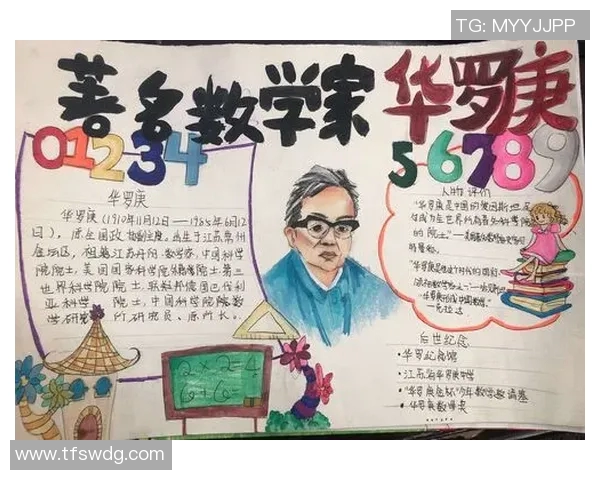 TG: MYYJJPP
著名数学家 华罗庚
01234
56789
华罗庚
华罗庚(1910年11月12日——1985年6月12
日),原全国政协副主席。出生于江苏常州
金坛区,祖籍江苏丹阳。数学家,中国科学
院院士,美国国家科学院外籍院士,第三
世界科学院院士,联邦德国巴伐利
亚科学院院士,中国科学院数
学研究所研究员、原所长。
人物评价
"华罗庚是中国的爱因斯坦,足
够成为全世界所有著名科学院
的院士。"
后世纪念
·华罗庚纪念馆
·江苏省华罗庚中学
·"华罗庚金杯"少年数学邀请赛
·华罗庚数学奖
2×2=4
6+6=
www.tfswdg.com